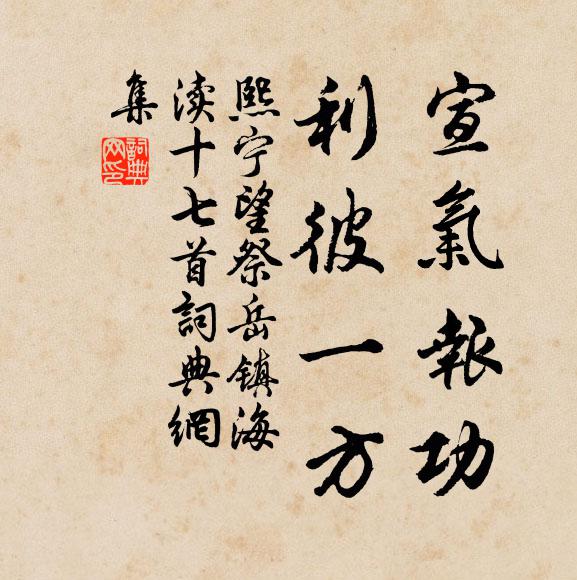 宣氣報功
利彼一方
熙宁望祭岳镇海
渎十七首詞典網
集
詞典網印